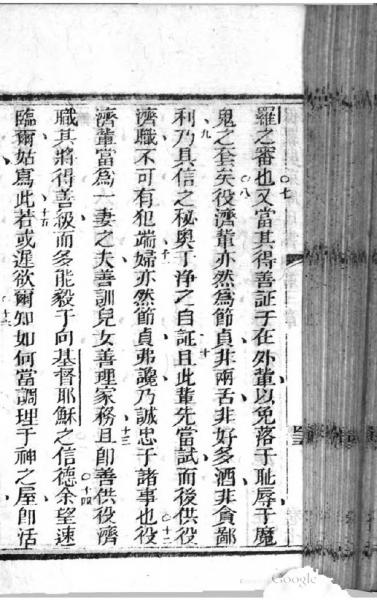 羅之審也又當其得善証于在外輩以免落于耻辱于魔
鬼之套矣役濟輩亦然為節貞非兩舌非好多酒非貪鄙
利乃具信之秘奧于浄之自証且此輩先當試而後供役
濟職不可有犯端婦亦然節貞弗讒乃誠忠于諸事也役
濟輩當為一妻之夫善訓兒女善理家務且卽善供役濟
職其將得善級而多能毅于向基督耶穌之信德余望速
臨爾姑寫此若或遲欲爾知如何當調理于神之屋卽活
○七
○八
九
十
十一
○十二
十三
○十四
十五
Google